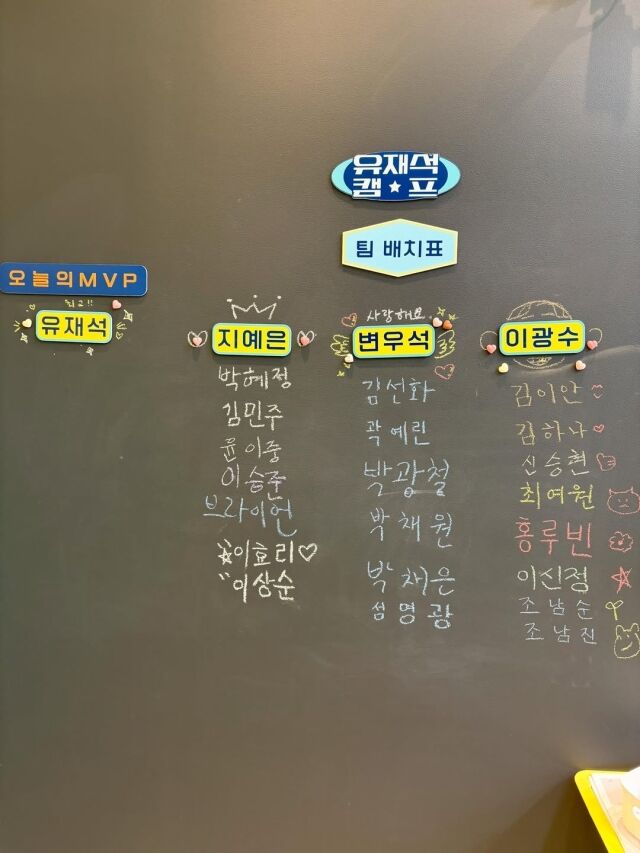 유재석
캠★프
팀 배치표
오늘의MVP
최고!!
유재석
지예은
박혜정
김민주
윤이중
이승준
브라이언
☆이효리♡
"이상순
사랑해요
변우석
김선화
곽예린
박광철
박채원
박채은
섬명광
이광수
김이안♡
김하나♡
신승현
최여원
홍루빈
이신정
조남순
조남진